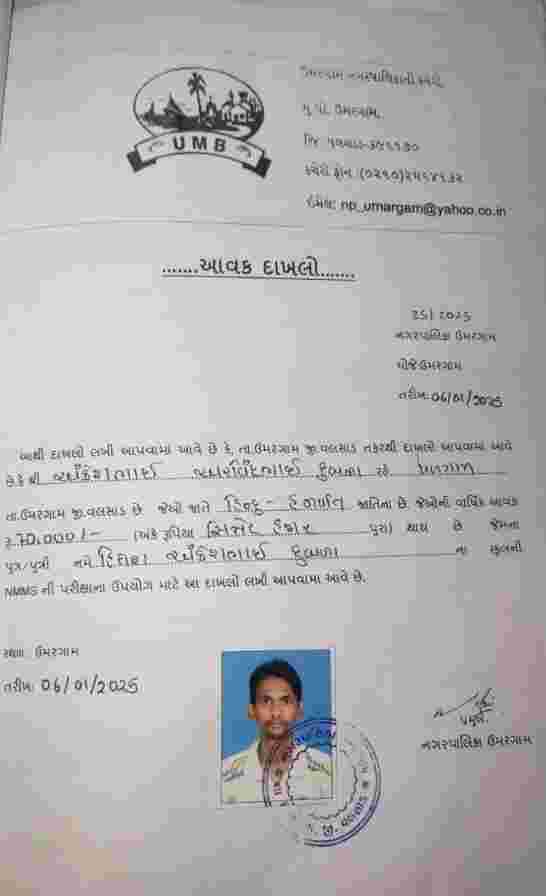 ઉમરગામ નગરપાલિકાની કચેરી,
મુ.પો. ઉમરગામ,
જિ વલસાડ-૩૯૬૧૭૦
કચેરી ફોન: (૦૨૬૦)૨૫૬૪૧૩૨
ઈમેલ: np_umargam@yahoo.co.in
UMB
.......આવક દાખલો.......
25/2025
નગરપાલિકા ઉમરગામ
મોજે-ઉમરગામ
તારીખ: 06/01/2025
આથી દાખલો લખી આપવામા આવે છે કે, તા.ઉમરગામ જી.વલસાડ તરફથી દાખલો આપવામા આવે
છે કે શ્રી અરવિંદભાઈ રહે.
તા.ઉમરગામ જી.વલસાડ છે. જેઓ જાતે હિન્દુ - જાતિના છે. જેઓની વાર્ષિક આવક
રૂ.70,000/- (અંકે રૂપિયા સિત્તેર હજાર પુરા) થાય છે જેમના
પુત્ર/પુત્રી નામે ના સ્કુલની
NMMS ની પરીક્ષાના ઉપયોગ માટે આ દાખલો લખી આપવામા આવે છે.
સ્થળ: ઉમરગામ
તારીખ: 06/01/2025
નગરપાલિકા ઉમરગામ